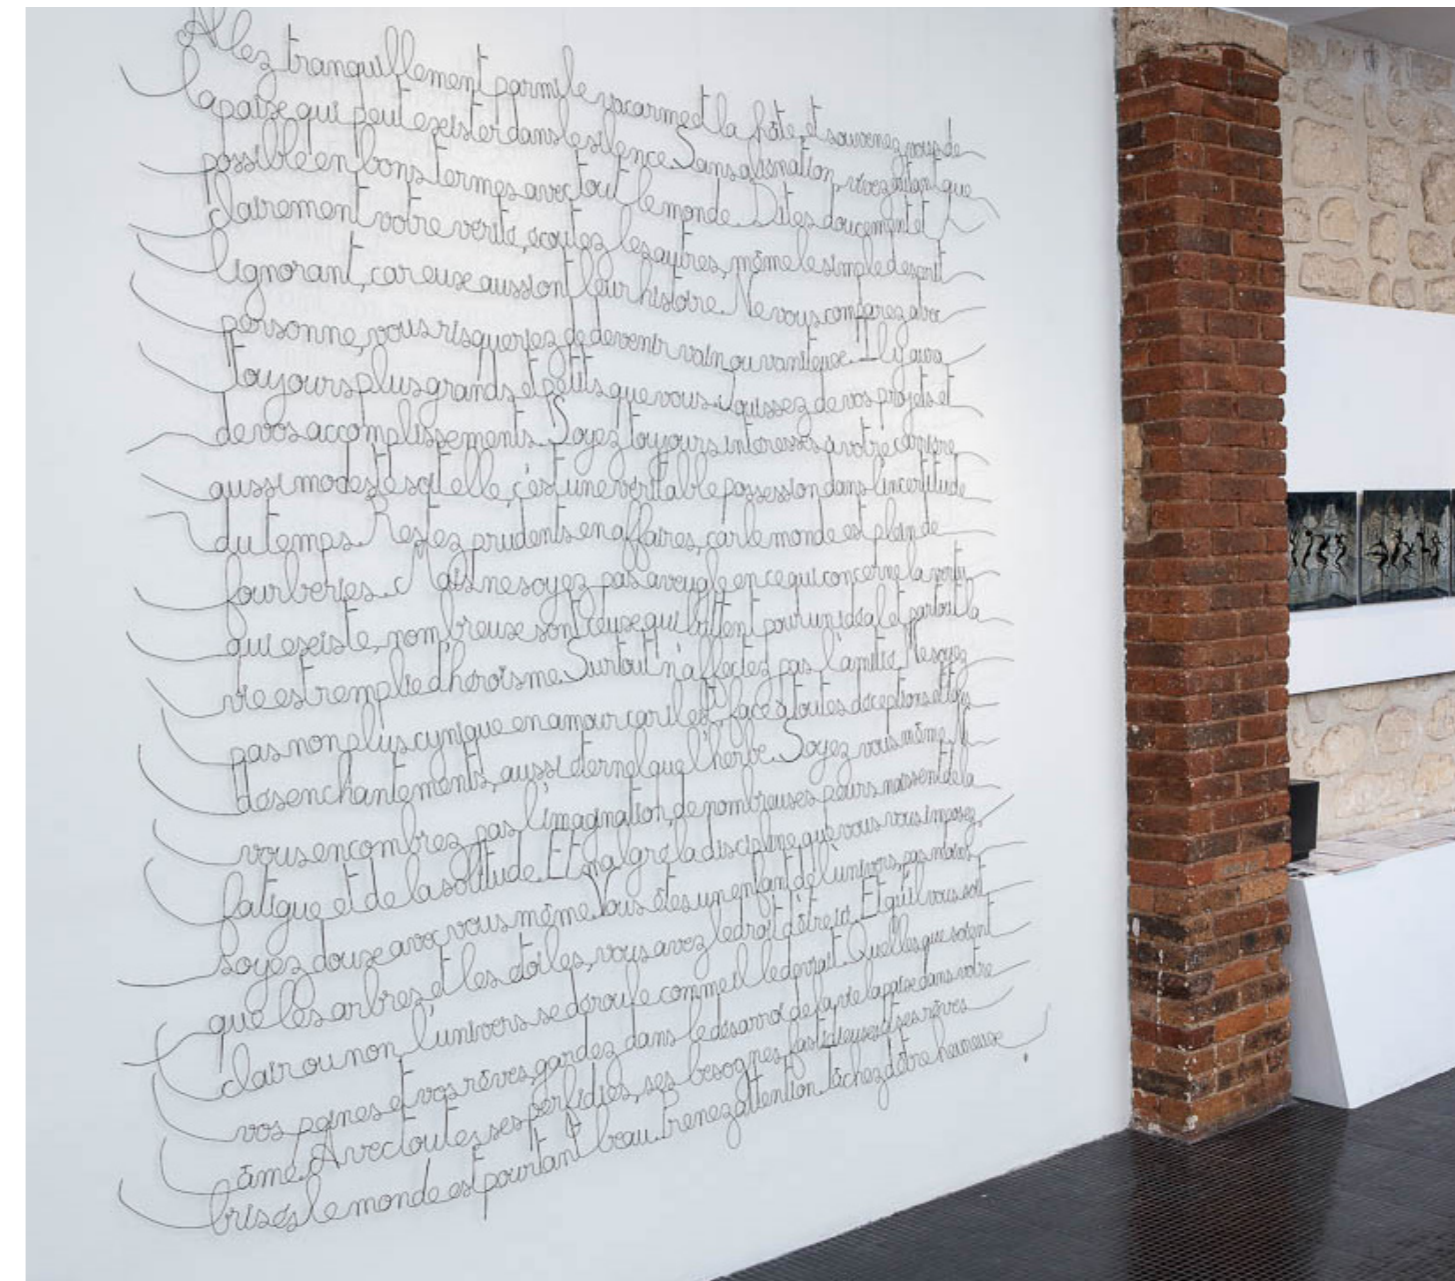 Allez tranquillement parmi le vacarme et la hâte, et souvenez vous de
la paix qui peut exister dans le silence. Sans aliénation, vivez autant que
possible en bons termes avec tout le monde. Dites doucement et
clairement votre vérité, écoutez les autres, même le simple d'esprit
l'ignorant, car eux aussi ont leur histoire. Ne vous comparez avec
personne, vous risqueriez de devenir vain ou vaniteux. Il y aura
toujours plus grands et petits que vous. Jouissez de vos projets et
de vos accomplissements. Soyez toujours intéressés à votre carrière
aussi modeste soit elle, c'est une véritable possession dans l'incertitude
du temps. Restez prudents en affaires, car le monde est plein de
fourberies. Mais ne soyez pas aveugle en ce qui concerne la vertu
qui existe, nombreux sont ceux qui luttent pour un idéal et partout la
vie est remplie d'héroïsme. Surtout n'affectez pas l'amitié. Ne soyez
pas non plus cynique en amour car il est face à toutes déceptions et
désenchantements, aussi éternel que l'herbe. Soyez vous même. N
vous encombrez pas l'imagination, de nombreuses peurs naissent de la
fatigue et de la solitude. Et malgré la discipline que vous vous imposez,
soyez doux avec vous même. Vous êtes un enfant de l'univers, pas moins
que les arbres et les étoiles, vous avez le droit d'être ici. Et qu'il vous soit
clair ou non, l'univers se déroule comme il le devrait. Quelles que soient
vos peines et vos rêves, gardez dans le désarroi de la vie la paix dans votre
âme. Avec toutes ses perfidies, ses besognes fastidieuses et ses rêves
brisés le monde est pourtant beau. Prenez attention, tâchez d'être heureux.